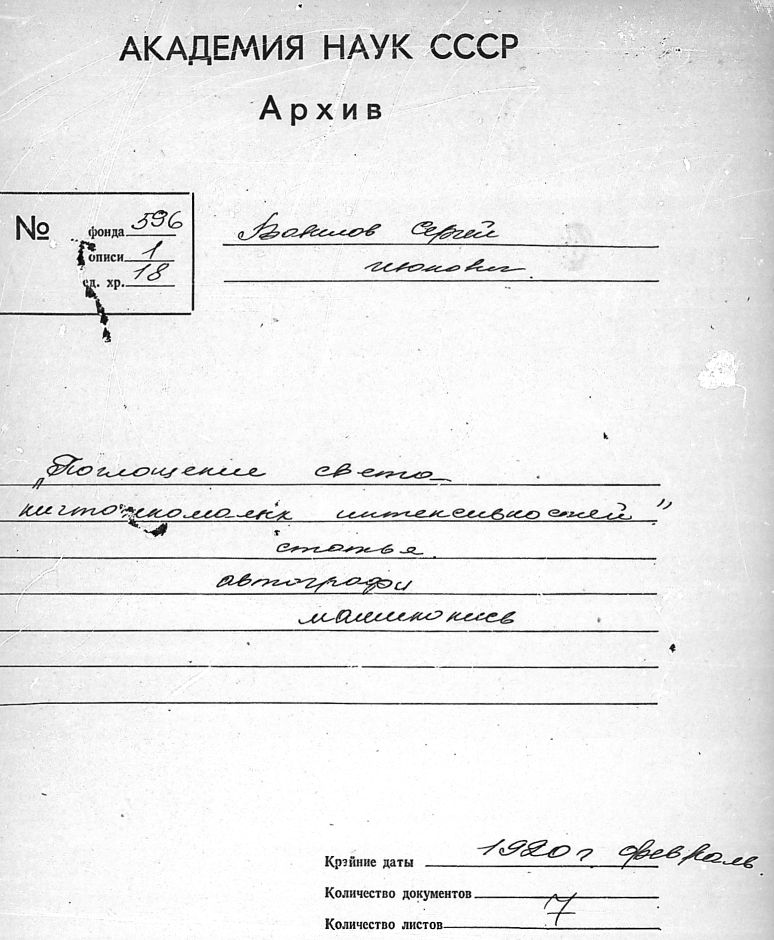 АКАДЕМИЯ НАУК СССР
Архив
№
фонда 596
описи 1
ед. хр. 18
Вавилов Сергей
Иванович
„Поглощение света
ничтожномалых интенсивностей"
статья
автографы
машинопись
Крайние даты 1920 г февраль.
Количество документов
Количество листов 7